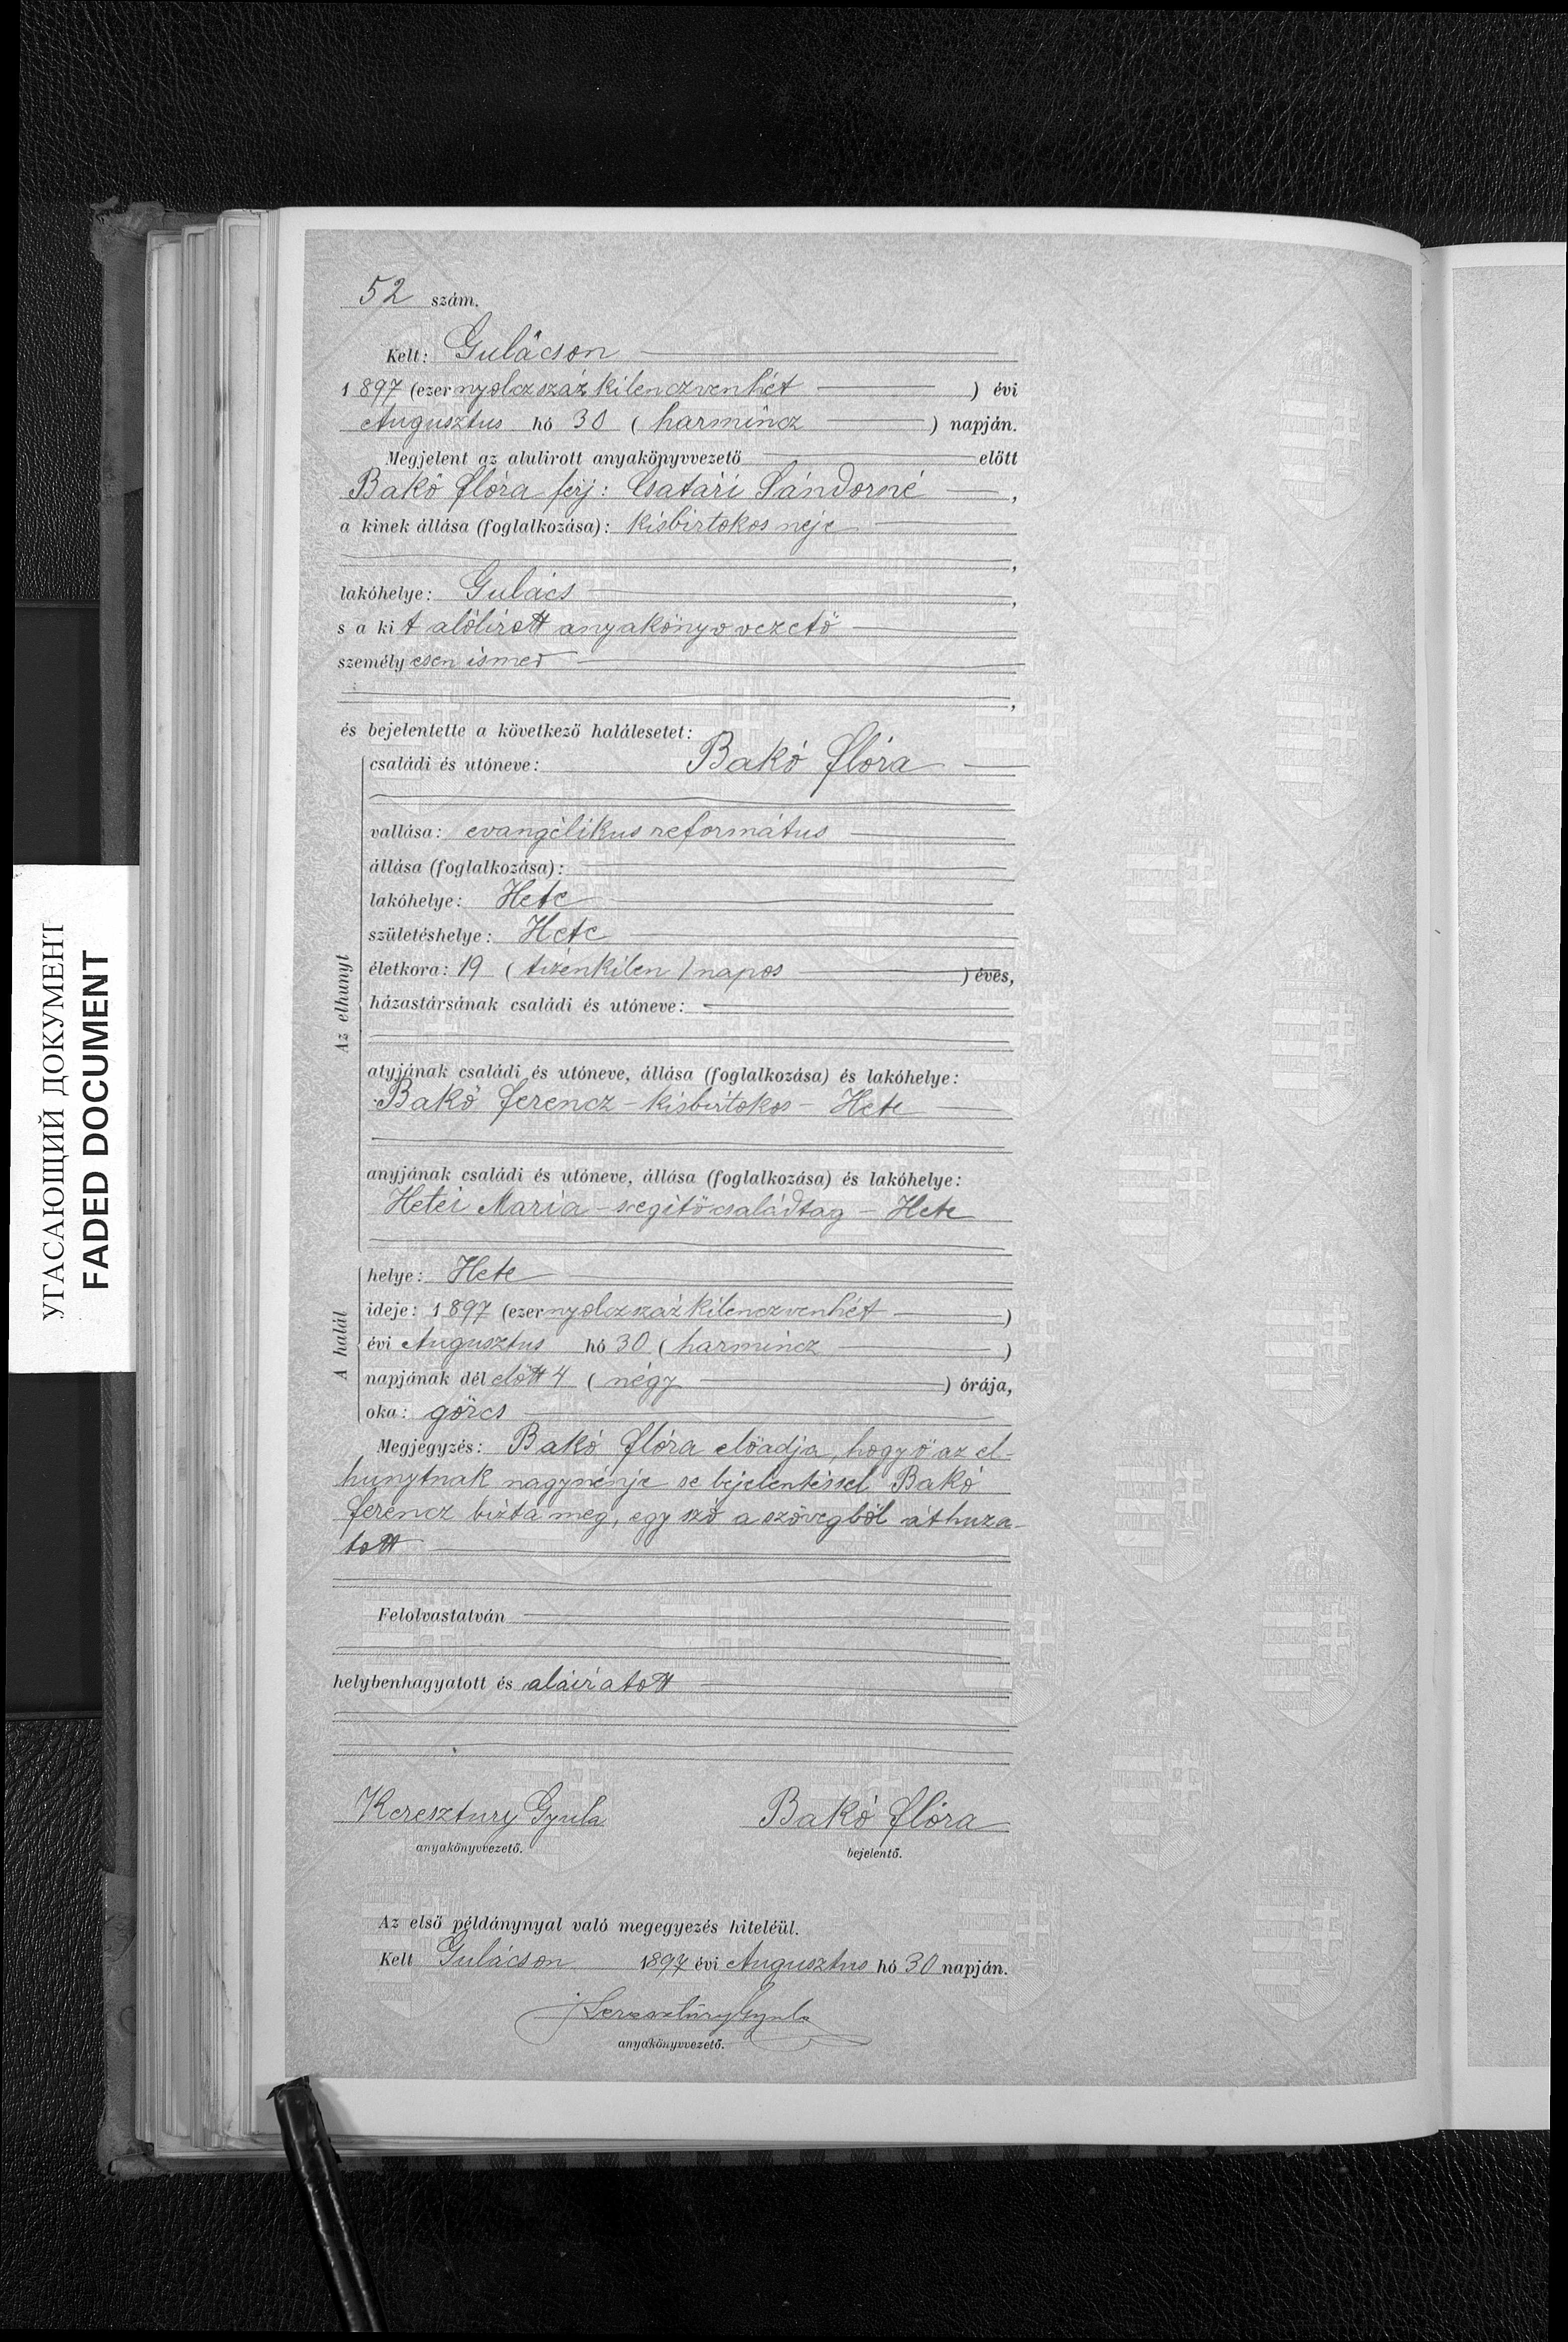 52 szám.
Kelt: Gulácson
1897 (ezer nyolczszáz kilenczvenhét ) évi
Augusztus hó 30 ( harmincz ) napján.
Megjelent az alulirott anyakönyvvezető előtt
Bakó Flóra férj: Csatári Sándorné ,
a kinek állása (foglalkozása): kisbirtokos neje
,
lakóhelye: Gulács ,
s a kit alólirott anyakönyvvezető
személyesen ismer
,
és bejelentette a következő halálesetet:
családi és utóneve: Bakó Flóra
vallása: evangélikus református
állása (foglalkozása):
lakóhelye: Hete
születéshelye: Hete
életkora: 19 (tizenkilen) napos ) éves,
házastársának családi és utóneve:
Az elhunyt
atyjának családi és utóneve, állása (foglalkozása) és lakóhelye:
Bakó Ferencz - kisbirtokos - Hete
anyjának családi és utóneve, állása (foglalkozása) és lakóhelye:
Hetei Mária - segitőcsaládtag - Hete
A halál
helye: Hete
ideje: 1897 (ezer nyolczszáz kilenczvenhét )
évi Augusztus hó 30 ( harmincz )
napjának dél előtt 4 ( négy ) órája,
oka: görcs
Megjegyzés: Bakó Flóra előadja, hogy ő az el-
hunytnak nagynénje se bejelentéssel Bakó
Ferencz bizta meg, egy szó a szövegből áthuza-
tott
Felolvastatván
helybenhagyatott és aláiratott
Keresztury Gyula
anyakönyvvezető.
Bakó Flóra
bejelentő.
Az első példánynyal való megegyezés hiteléül.
Kelt Gulácson 1897 évi Augusztus hó 30 napján.
Keresztúry Gyula
anyakönyvvezető.
УГАСАЮЩИЙ ДОКУМЕНТ
FADED DOCUMENT